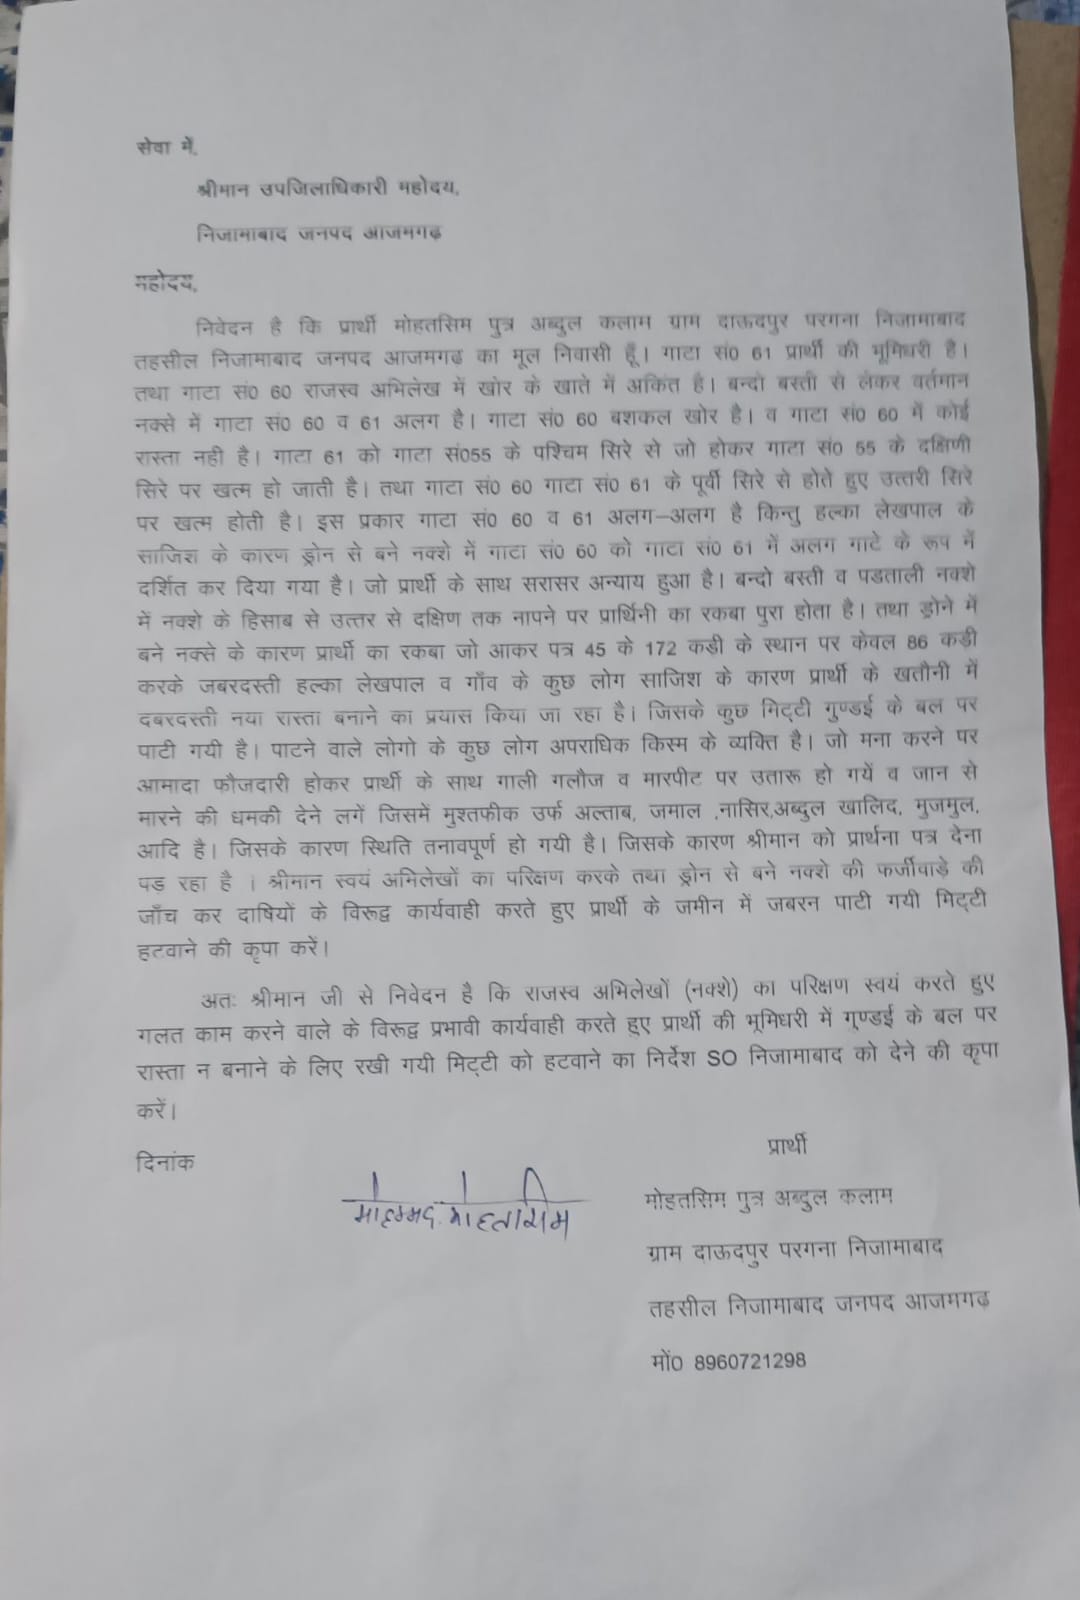 सेवा में,
श्रीमान उपजिलाधिकारी महोदय,
निजामाबाद जनपद आजमगढ़
महोदय,
निवेदन है कि प्रार्थी मोहतसिम पुत्र अब्दुल कलाम ग्राम दाऊदपुर परगना निजामाबाद
तहसील निजामाबाद जनपद आजमगढ़ का मूल निवासी हूँ। गाटा सं0 61 प्रार्थी की भूमिधरी है।
तथा गाटा सं0 60 राजस्व अभिलेख में खोर के खाते में अकिंत है। बन्दो बस्ती से लेकर वर्तमान
नक्से में गाटा सं0 60 व 61 अलग है। गाटा सं0 60 बशकल खोर है। व गाटा सं0 60 में कोई
रास्ता नही है। गाटा 61 को गाटा सं055 के पश्चिम सिरे से जो होकर गाटा सं0 55 के दक्षिणी
सिरे पर खत्म हो जाती है। तथा गाटा सं0 60 गाटा सं0 61 के पूर्वी सिरे से होते हुए उत्तरी सिरे
पर खत्म होती है। इस प्रकार गाटा सं0 60 व 61 अलग–अलग है किन्तु हल्का लेखपाल के
साजिश के कारण ड्रोन से बने नक्शे में गाटा सं0 60 को गाटा सं0 61 में अलग गाटे के रूप में
दर्शित कर दिया गया है। जो प्रार्थी के साथ सरासर अन्याय हुआ है। बन्दो बस्ती व पडताली नक्शे
में नक्शे के हिसाब से उत्तर से दक्षिण तक नापने पर प्रार्थिनी का रकबा पुरा होता है। तथा ड्रोने में
बने नक्से के कारण प्रार्थी का रकबा जो आकर पत्र 45 के 172 कड़ी के स्थान पर केवल 86 कड़ी
करके जबरदस्ती हल्का लेखपाल व गाँव के कुछ लोग साजिश के कारण प्रार्थी के खतौनी में
दबरदस्ती नया रास्ता बनाने का प्रयास किया जा रहा है। जिसके कुछ मिट्टी गुण्डई के बल पर
पाटी गयी है। पाटने वाले लोगो के कुछ लोग अपराधिक किस्म के व्यक्ति है। जो मना करने पर
आमादा फौजदारी होकर प्रार्थी के साथ गाली गलौज व मारपीट पर उतारू हो गयें व जान से
मारने की धमकी देने लगें जिसमें मुश्तफीक उर्फ अल्ताब, जमाल ,नासिर,अब्दुल खालिद, मुजमुल,
आदि है। जिसके कारण स्थिति तनावपूर्ण हो गयी है। जिसके कारण श्रीमान को प्रार्थना पत्र देना
पड रहा है । श्रीमान स्वयं अभिलेखों का परिक्षण करके तथा ड्रोन से बने नक्शे की फर्जीवाड़े की
जाँच कर दाषियों के विरूद्व कार्यवाही करते हुए प्रार्थी के जमीन में जबरन पाटी गयी मिट्टी
हटवाने की कृपा करें।
अतः श्रीमान जी से निवेदन है कि राजस्व अभिलेखों (नक्शे) का परिक्षण स्वयं करते हुए
गलत काम करने वाले के विरूद्व प्रभावी कार्यवाही करते हुए प्रार्थी की भूमिधरी में गुण्डई के बल पर
रास्ता न बनाने के लिए रखी गयी मिट्टी को हटवाने का निर्देश SO निजामाबाद को देने की कृपा
करें।
प्रार्थी
दिनांक
मोहम्मद मोहतासिम
मोहतसिम पुत्र अब्दुल कलाम
ग्राम दाऊदपुर परगना निजामाबाद
तहसील निजामाबाद जनपद आजमगढ़
मों0 8960721298